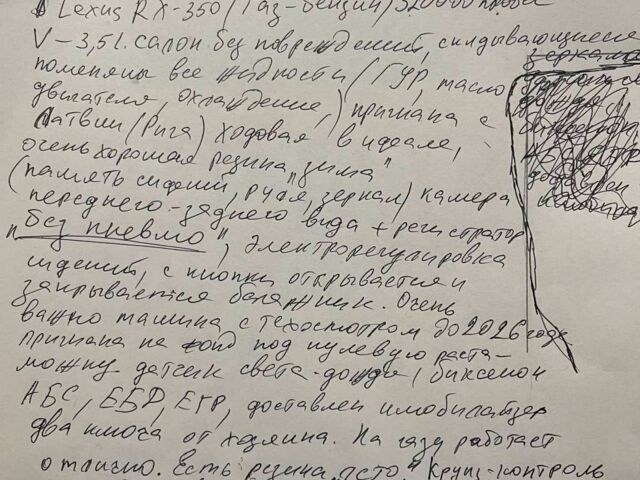 Lexus RX-350 (Газ-бензин) 320000 пробег
V-3,5l. салон без повреждений, складывающиеся зеркала
поменяны все жидкости (ГУР, масло
двигателя, охлаждение,) пригнана с
Латвии (Рига) ходовая в идеале,
очень хорошая резина "зима"
(память сидений, руля, зеркал) камера
переднего-заднего вида + регистратор
"без пневмо", электрорегулировка
сидений, с кнопки открывается и
закрывается багажник. Очень
важно машина с техосмотром до 2026 года
пригнана на под нулевую раста-
можку датчик света-дождя, биксенон
АБС, ЕБД, ЕГР, доставлен имобилайзер
два ключа от хозяина. На газу работает
отлично. Есть резина "лето" Круиз-контроль